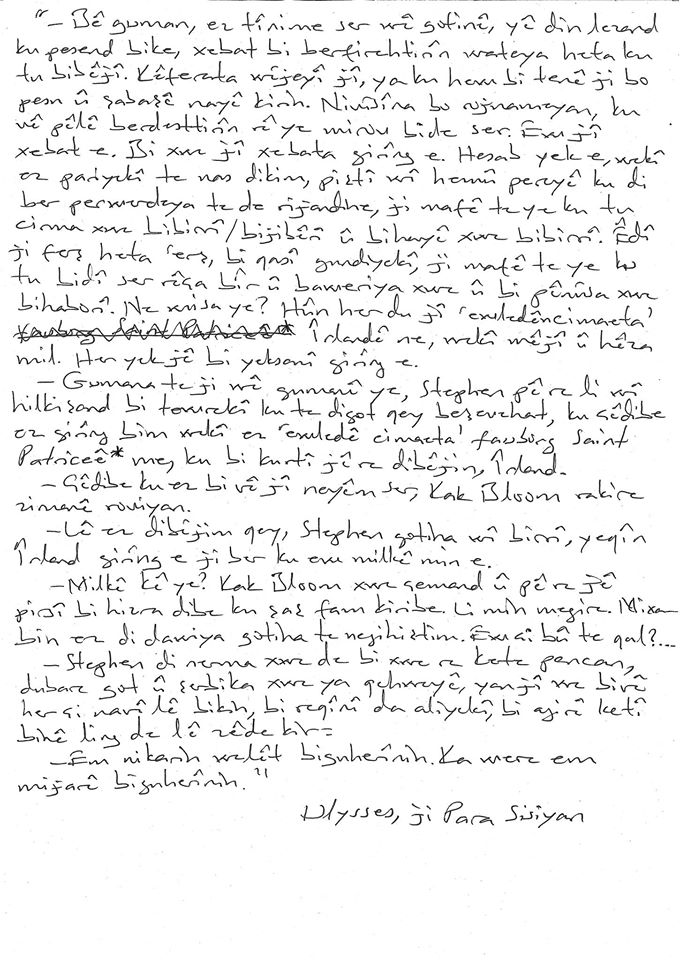 "— Bê guman, ez tînime ser wê gotinê, yê din lezand
ku pesend bike, xebat bi berfirehtirîn wateya heta ku
tu bibêjî. Kêferata wêjeyî jî, ya ku hew bi tenê ji bo
pesn û şabaşê nayê kirin. Nivîsîna bo rojnameyan, ku
vê pêlê berdesttirîn rê ye mirov bide ser. Ew jî
xebat e. Bi xwe jî xebata girîng e. Hesab yek e, wekî
ez pariyekî te nas dikim, piştî wî hemû pereyê ku di
ber perwerdeya te de rijandine, ji mafê te ye ku tu
cirma xwe bibirî/bijibêrî û bihayê xwe bibirrî. Êdî
ji ferş heta 'erş, bi qasî gundiyekî, ji mafê te ye ku
tu bidî ser rêça bîr û baweriya xwe û bi pênûsa xwe
bihaborî. Ne wisa ye? Hûn her du jî
Îrlandê ne, wekî mêjî û hêza
mil. Her yek jê bi yeksanî girîng e.
— Gumana te ji wê gumanê ye, Stephen pê re li wî
hilkişand bi tewrekî ku te digot qey beşevehat, ku çêdibe
ez girîng bim wekî ez faubûrg Saint
Patriceê* me, ku bi kurtî jê re dibêjin, Îrland.
— Çêdibe ku ez bi vê jî neyêm ser, Kak Bloom rakire
zimanê roviyan.
— Lê ez dibêjim qey, Stephen gotina wî birrî, yeqîn
Îrland girîng e ji ber ku ew milkê min e.
— Milkê kê ye? Kak Bloom xwe çemand û pê re jê
pirsî bi hizra dibe ku şaş fam kiribe. Li min megire. Mixabin
bin ez di dawiya gotina te negihiştim. Ew çi bû te got?...
— Stephen di nerma xwe de bi xwe re kete pencan,
dubare got û şerbika xwe ya qehweyê, yan jî we bivê
her çi navî lê bikin, bi reqînî da aliyekî, bi agirê ketî
binê ling de lê zêde kir=
— Em nikarin welêt biguherînin. Ka were em
mijarê biguherînin."
Ulysses, ji Para Sisiyan